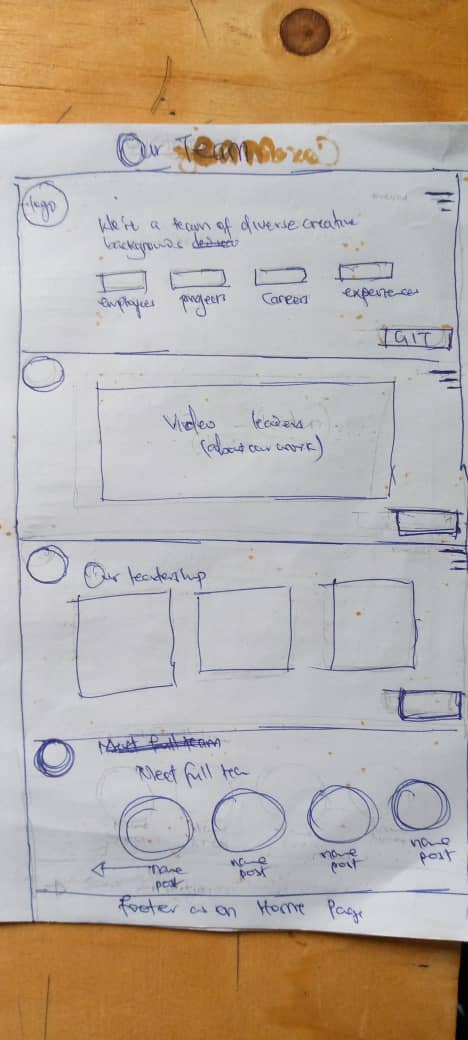 Our Team
logo
We're a team of diverse creative
backgrounds
employees projects Careers experiences
GIT
Video leaders
(about our work)
Our leadership
Meet full team
Meet full tea
name name name name
post post post post
Footer as on Home Page